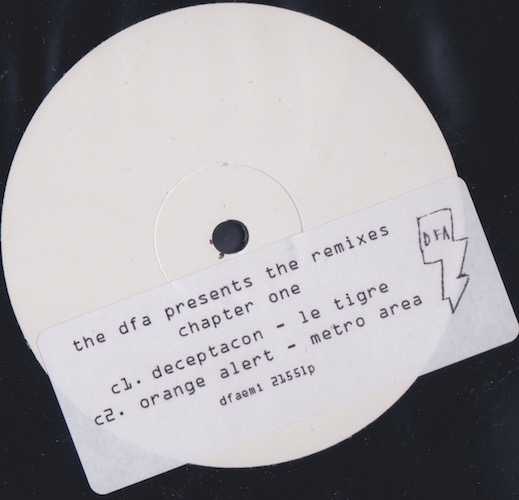 the dfa presents the remixes
chapter one
c1. deceptacon - le tigre
c2. orange alert - metro area
dfaemi 21551p
DFA